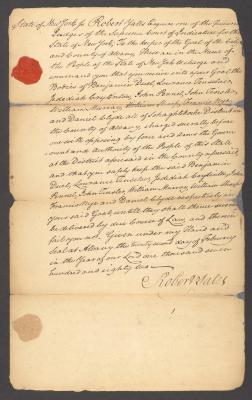 State of New York ss Robert Yates Esquire one of the Puisne
Judges of the Supreme Court of Judicature for the
State of New York To the keeper of the Goal of the City
and County of Albany These are in the Name of
the People of the State of New York to charge and
command you that you receive into your Goal the
Bodies of Benjamin Lawrence
Jedediah John
Pennel, John William Murray, William Sharp, Francis
and Daniel Clyde all of Schaghtikoke District in
the County of Albany charged severally before
me with opposing by force and arms the Govern
ment and Authority of the People of this State
at the District aforesaid in the County aforesaid
and that you safely keep the said Benjamin
Lawrence Jedediah John
Pennel, John William Murray William Sharp
Francis and Daniel Clyde respectively in
your said Goal until they shall thence
be delivered by due Course of Law and therein
fail you not. Given under my Hand and
Seal at Albany the twenty second day of February
in the Year of our Lord one thousand seven
hundred and eighty two
Robert Yates